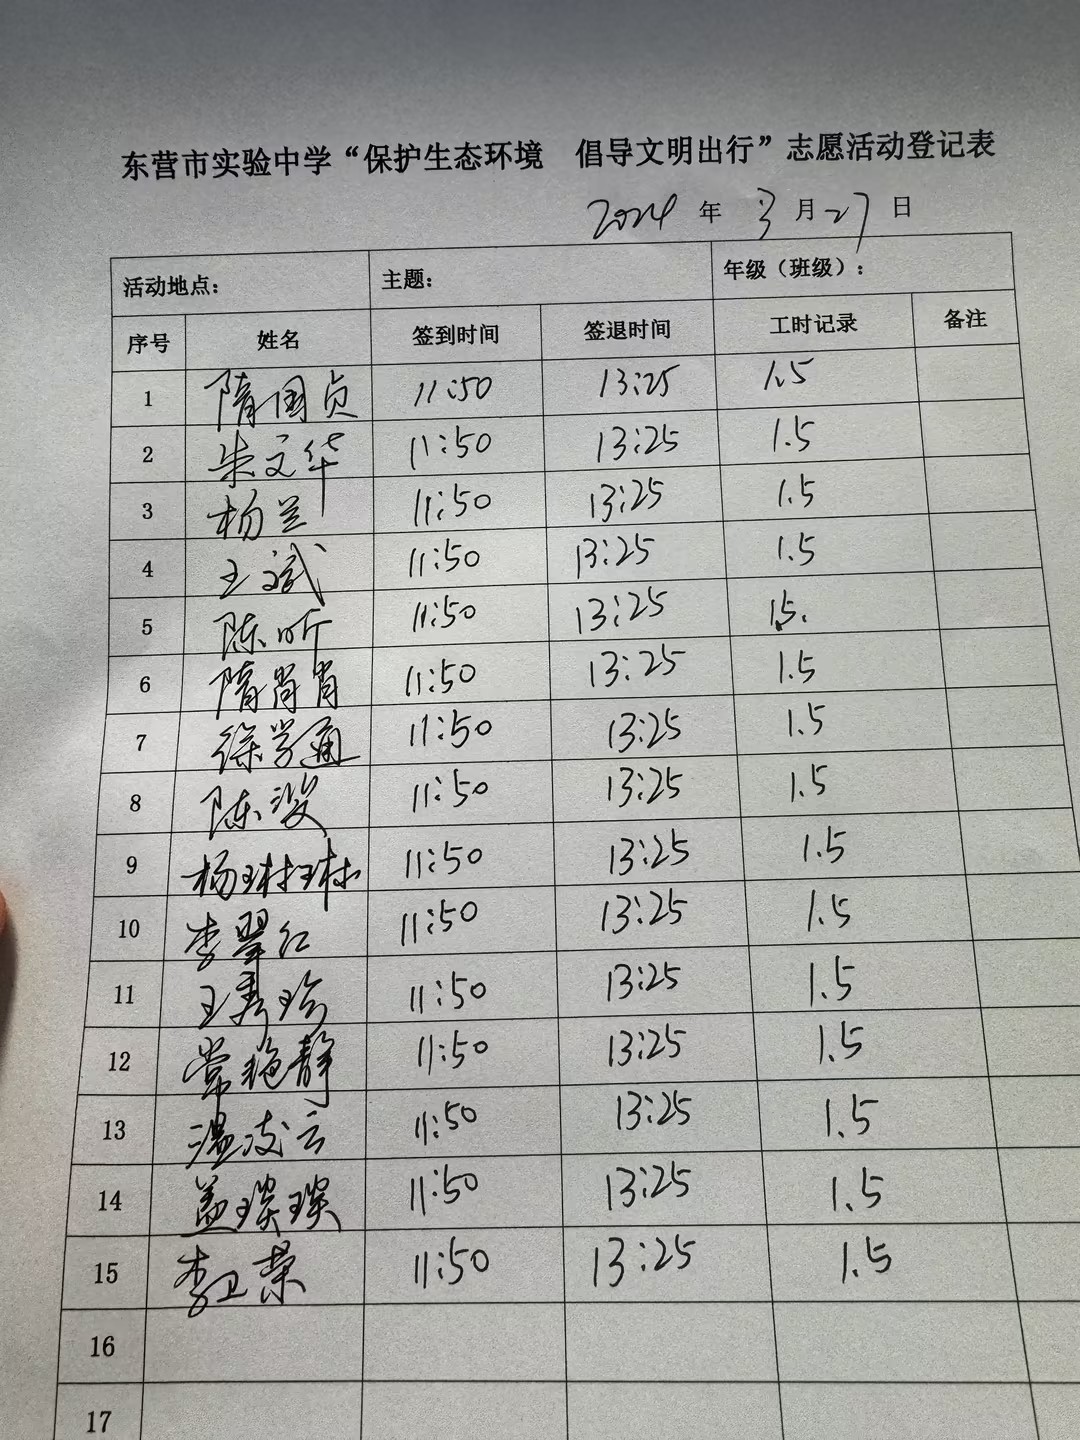 东营市实验中学“保护生态环境 倡导文明出行”志愿活动登记表
2024 年 3 月 27 日
活动地点： 主题： 年级（班级）：
序号 姓名 签到时间 签退时间 工时记录 备注
1 隋国贞 11:50 13:25 1.5
2 朱文华 11:50 13:25 1.5
3 杨兰 11:50 13:25 1.5
4 王斌 11:50 13:25 1.5
5 陈昕 11:50 13:25 15.
6 隋肖肖 11:50 13:25 1.5
7 徐学通 11:50 13:25 1.5
8 陈 11:50 13:25 1.5
9 杨琳琳 11:50 13:25 1.5
10 李翠红 11:50 13:25 1.5
11 王秀珍 11:50 13:25 1.5
12 常艳静 11:50 13:25 1.5
13 温凌云 11:50 13:25 1.5
14 盖琰琰 11:50 13:25 1.5
15 李卫荣 11:50 13:25 1.5
16
17